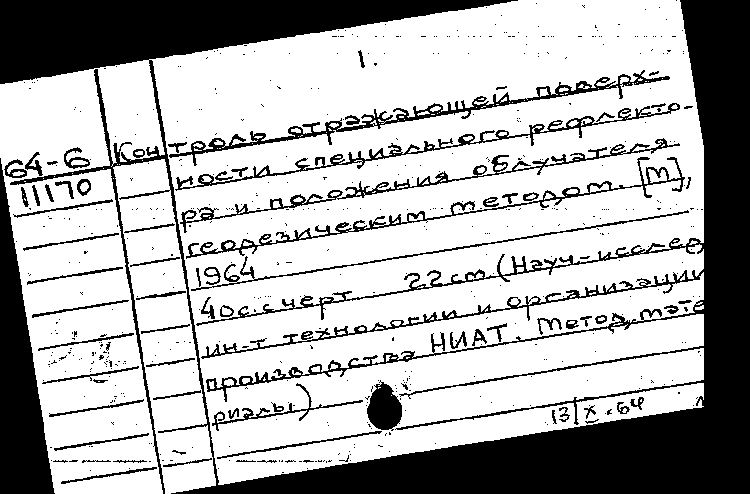 1.
64-6
11170
Контроль отражающей поверх-
ности специального рефлекто-
ра и положения облучателя
геодезическим методом. [М],
1964
40 с. с черт 22 см (Науч-исслед
ин-т технологии и организации
производства НИАТ. Метод. мате
риалы)
13/X-64